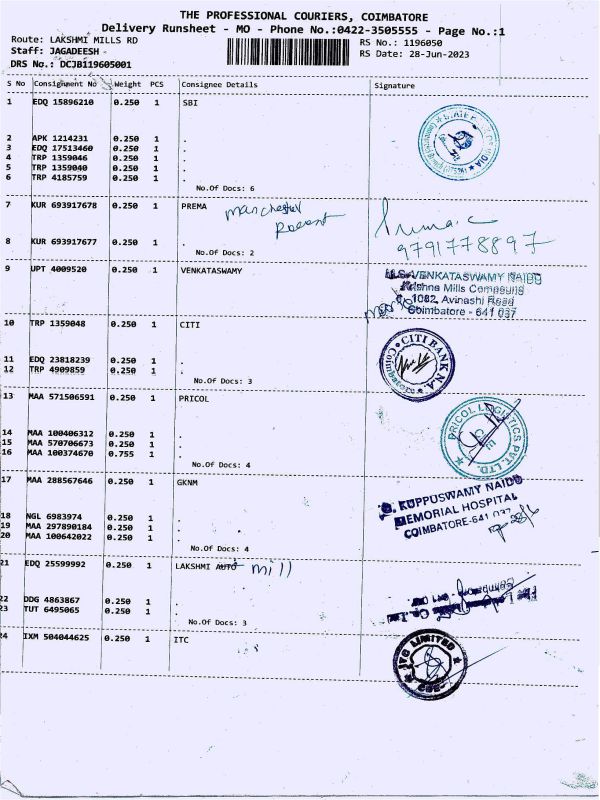 THE PROFESSIONAL COURIERS, COIMBATORE
Delivery Runsheet - MO - Phone No.:0422-3505555 - Page No.:1
Route: LAKSHMI MILLS RD
RS No.: 1196050
Staff: JAGADEESH -
RS Date: 28-Jun-2023
DRS No.: DCJB119605001
S No Consignment No Weight PCS Consignee Details Signature
1 EDQ 15896210 0.250 1 SBI
2 APK 1214231 0.250 1 .
3 EDQ 17513460 0.250 1 .
4 TRP 1359046 0.250 1 .
5 TRP 1359040 0.250 1 .
6 TRP 4185759 0.250 1 .
No.Of Docs: 6
7 KUR 693917678 0.250 1 PREMA
Prema.c
9791778897
8 KUR 693917677 0.250 1 .
No.Of Docs: 2
9 UPT 4009520 0.250 1 VENKATASWAMY
VENKATASWAMY NAIDU
Krishna Mills Compound
1082, Avinashi Road
Coimbatore - 641 037
10 TRP 1359048 0.250 1 CITI
CITI BANK N.A.
Coimbatore
11 EDQ 23818239 0.250 1 .
12 TRP 4909859 0.250 1 .
No.Of Docs: 3
13 MAA 571506591 0.250 1 PRICOL
PRICOL LOGISTICS PVT. LTD.
14 MAA 100406312 0.250 1 .
15 MAA 570706673 0.250 1 .
16 MAA 100374670 0.755 1 .
No.Of Docs: 4
17 MAA 288567646 0.250 1 GKNM
G. KUPPUSWAMY NAIDU
MEMORIAL HOSPITAL
COIMBATORE-641 037
18 NGL 6983974 0.250 1 .
19 MAA 297890184 0.250 1 .
20 MAA 100642022 0.250 1 .
No.Of Docs: 4
21 EDQ 25599992 0.250 1 LAKSHMI AUTO mill
22 DDG 4863867 0.250 1 .
23 TUT 6495065 0.250 1 .
No.Of Docs: 3
24 IXM 504044625 0.250 1 ITC
ITC LIMITED